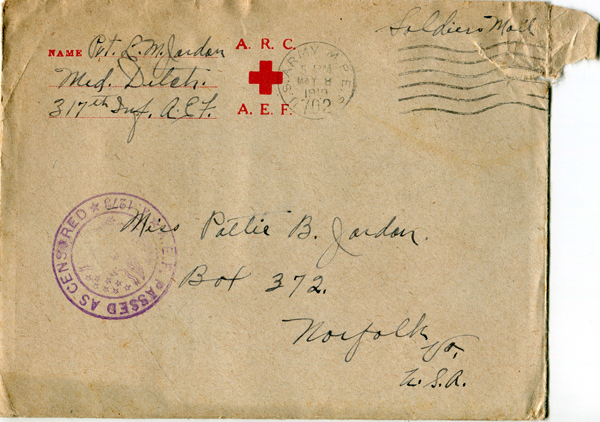 Soldiers Mail
NAME Pvt. L. M. Jordan
Med. Detch.
317th Inf. A.E.F.
A. R. C.
A. E. F.
U.S. ARMY M.P.E.S.
MAY
1919
702
PASSED AS CENSORED
Miss Pattie B. Jordan.
Box 372.
Norfolk
Va.
U.S.A.